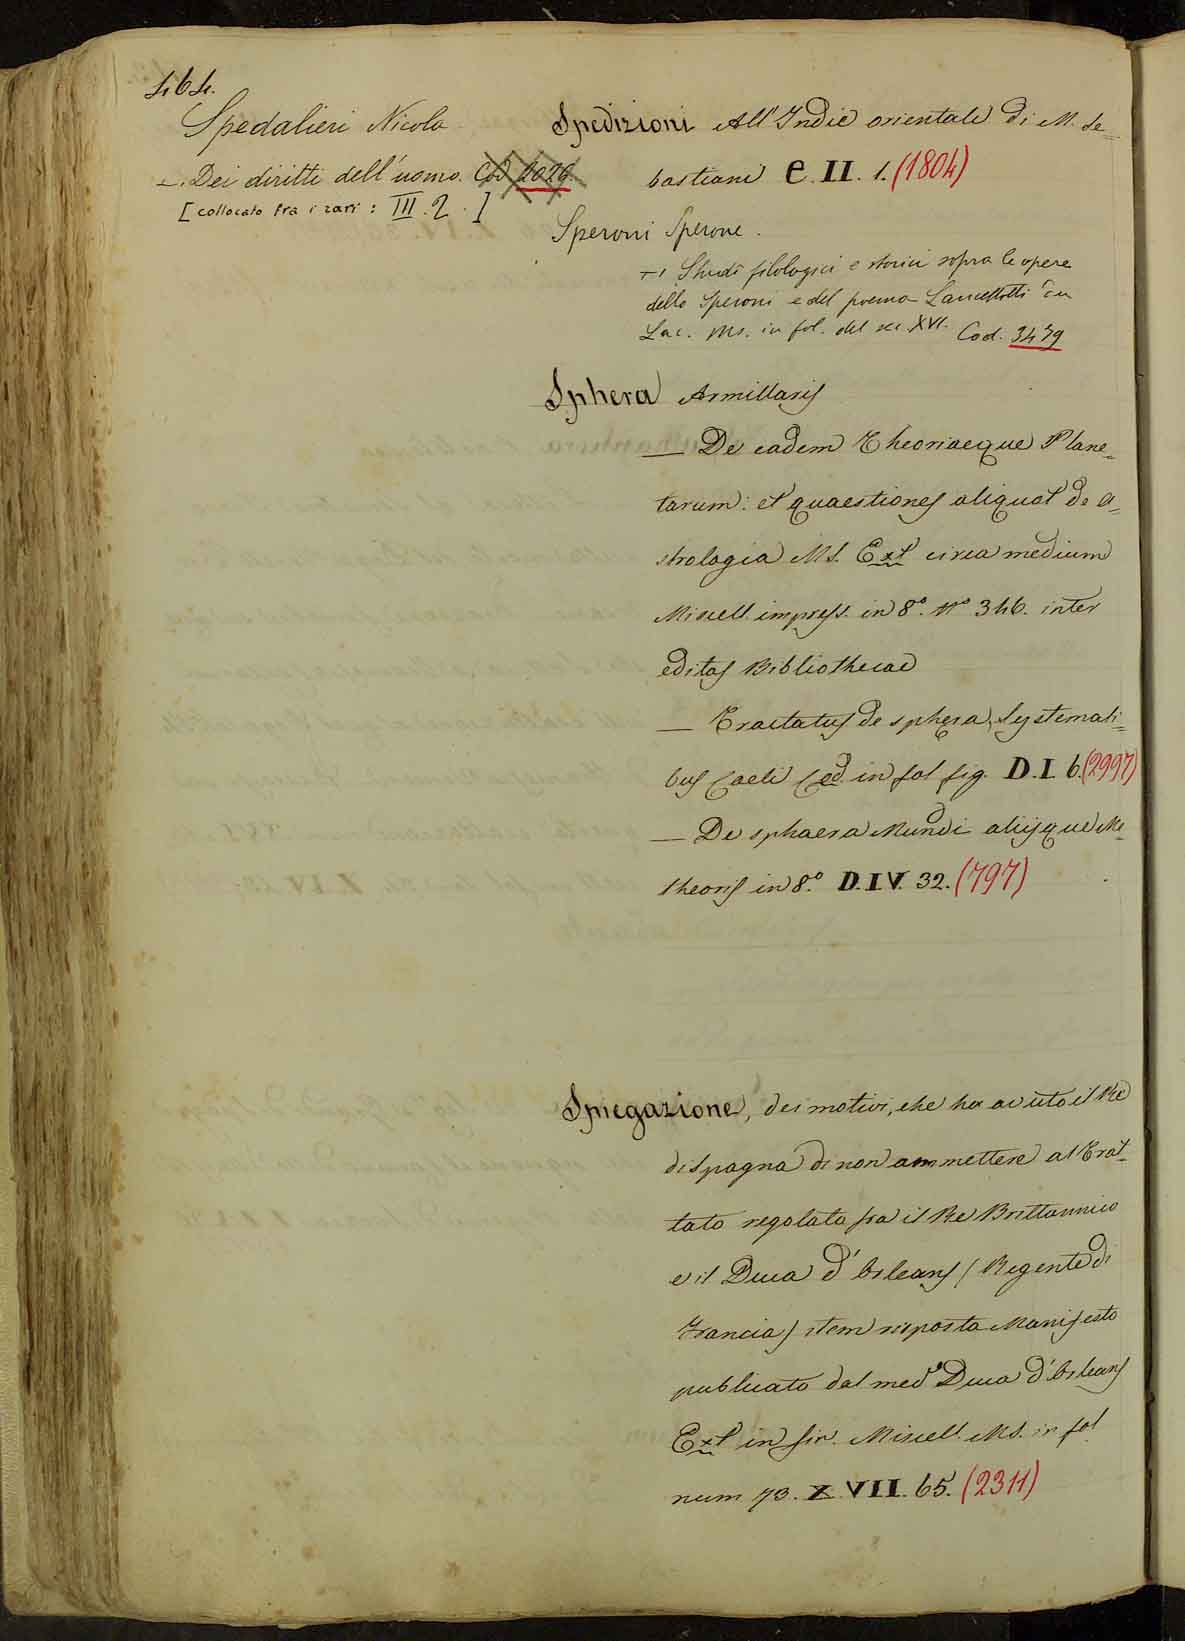 464.
Spedalieri Nicola
—. Dei diritti dell'uomo. Cod 2026.
[collocato fra i rari: III. 2.]
Spedizioni All'Indie orientale di M. Se=
bastiani e. II. 1. (1804)
Speroni Sperone.
Studi filologici e storici sopra le opere
dello Speroni e del poema Lancellotti
Lac. Ms. in fol. del sec XVI. Cod. 3479
Sphera Armillaris
— De eadem Theoriaeque Plane=
tarum: et quaestiones aliquot de A=
strologia MS. Ext circa medium
Miscell. impress. in 8.º nº 346. inter
editas Bibliothecae
— Tractatus de sphera, Systemati=
bus Caeli Cod. in fol fig. D. I. 6. (2997)
— De sphaera Mundi aliisque Me=
theoris in 8.º D. IV. 32. (797)
Spiegazione, dei motivi, che ha avuto il Re
di Spagna di non ammettere al Trat=
tato regolato fra il Re Brittannico
e il Duca d'Orleans (Regente di
Francia) item risposta Manifesto
publicato dal medº Duca d'Orleans
Ext in fin. Miscell. MS. in fol
num 73. X. VII. 65. (2311)